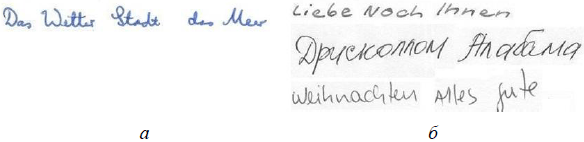 Das Wetter Stadt das Meer
Liebe Noch Ihnen
Дрисколлом Алабама
Weihnachten Alles gute
а
б